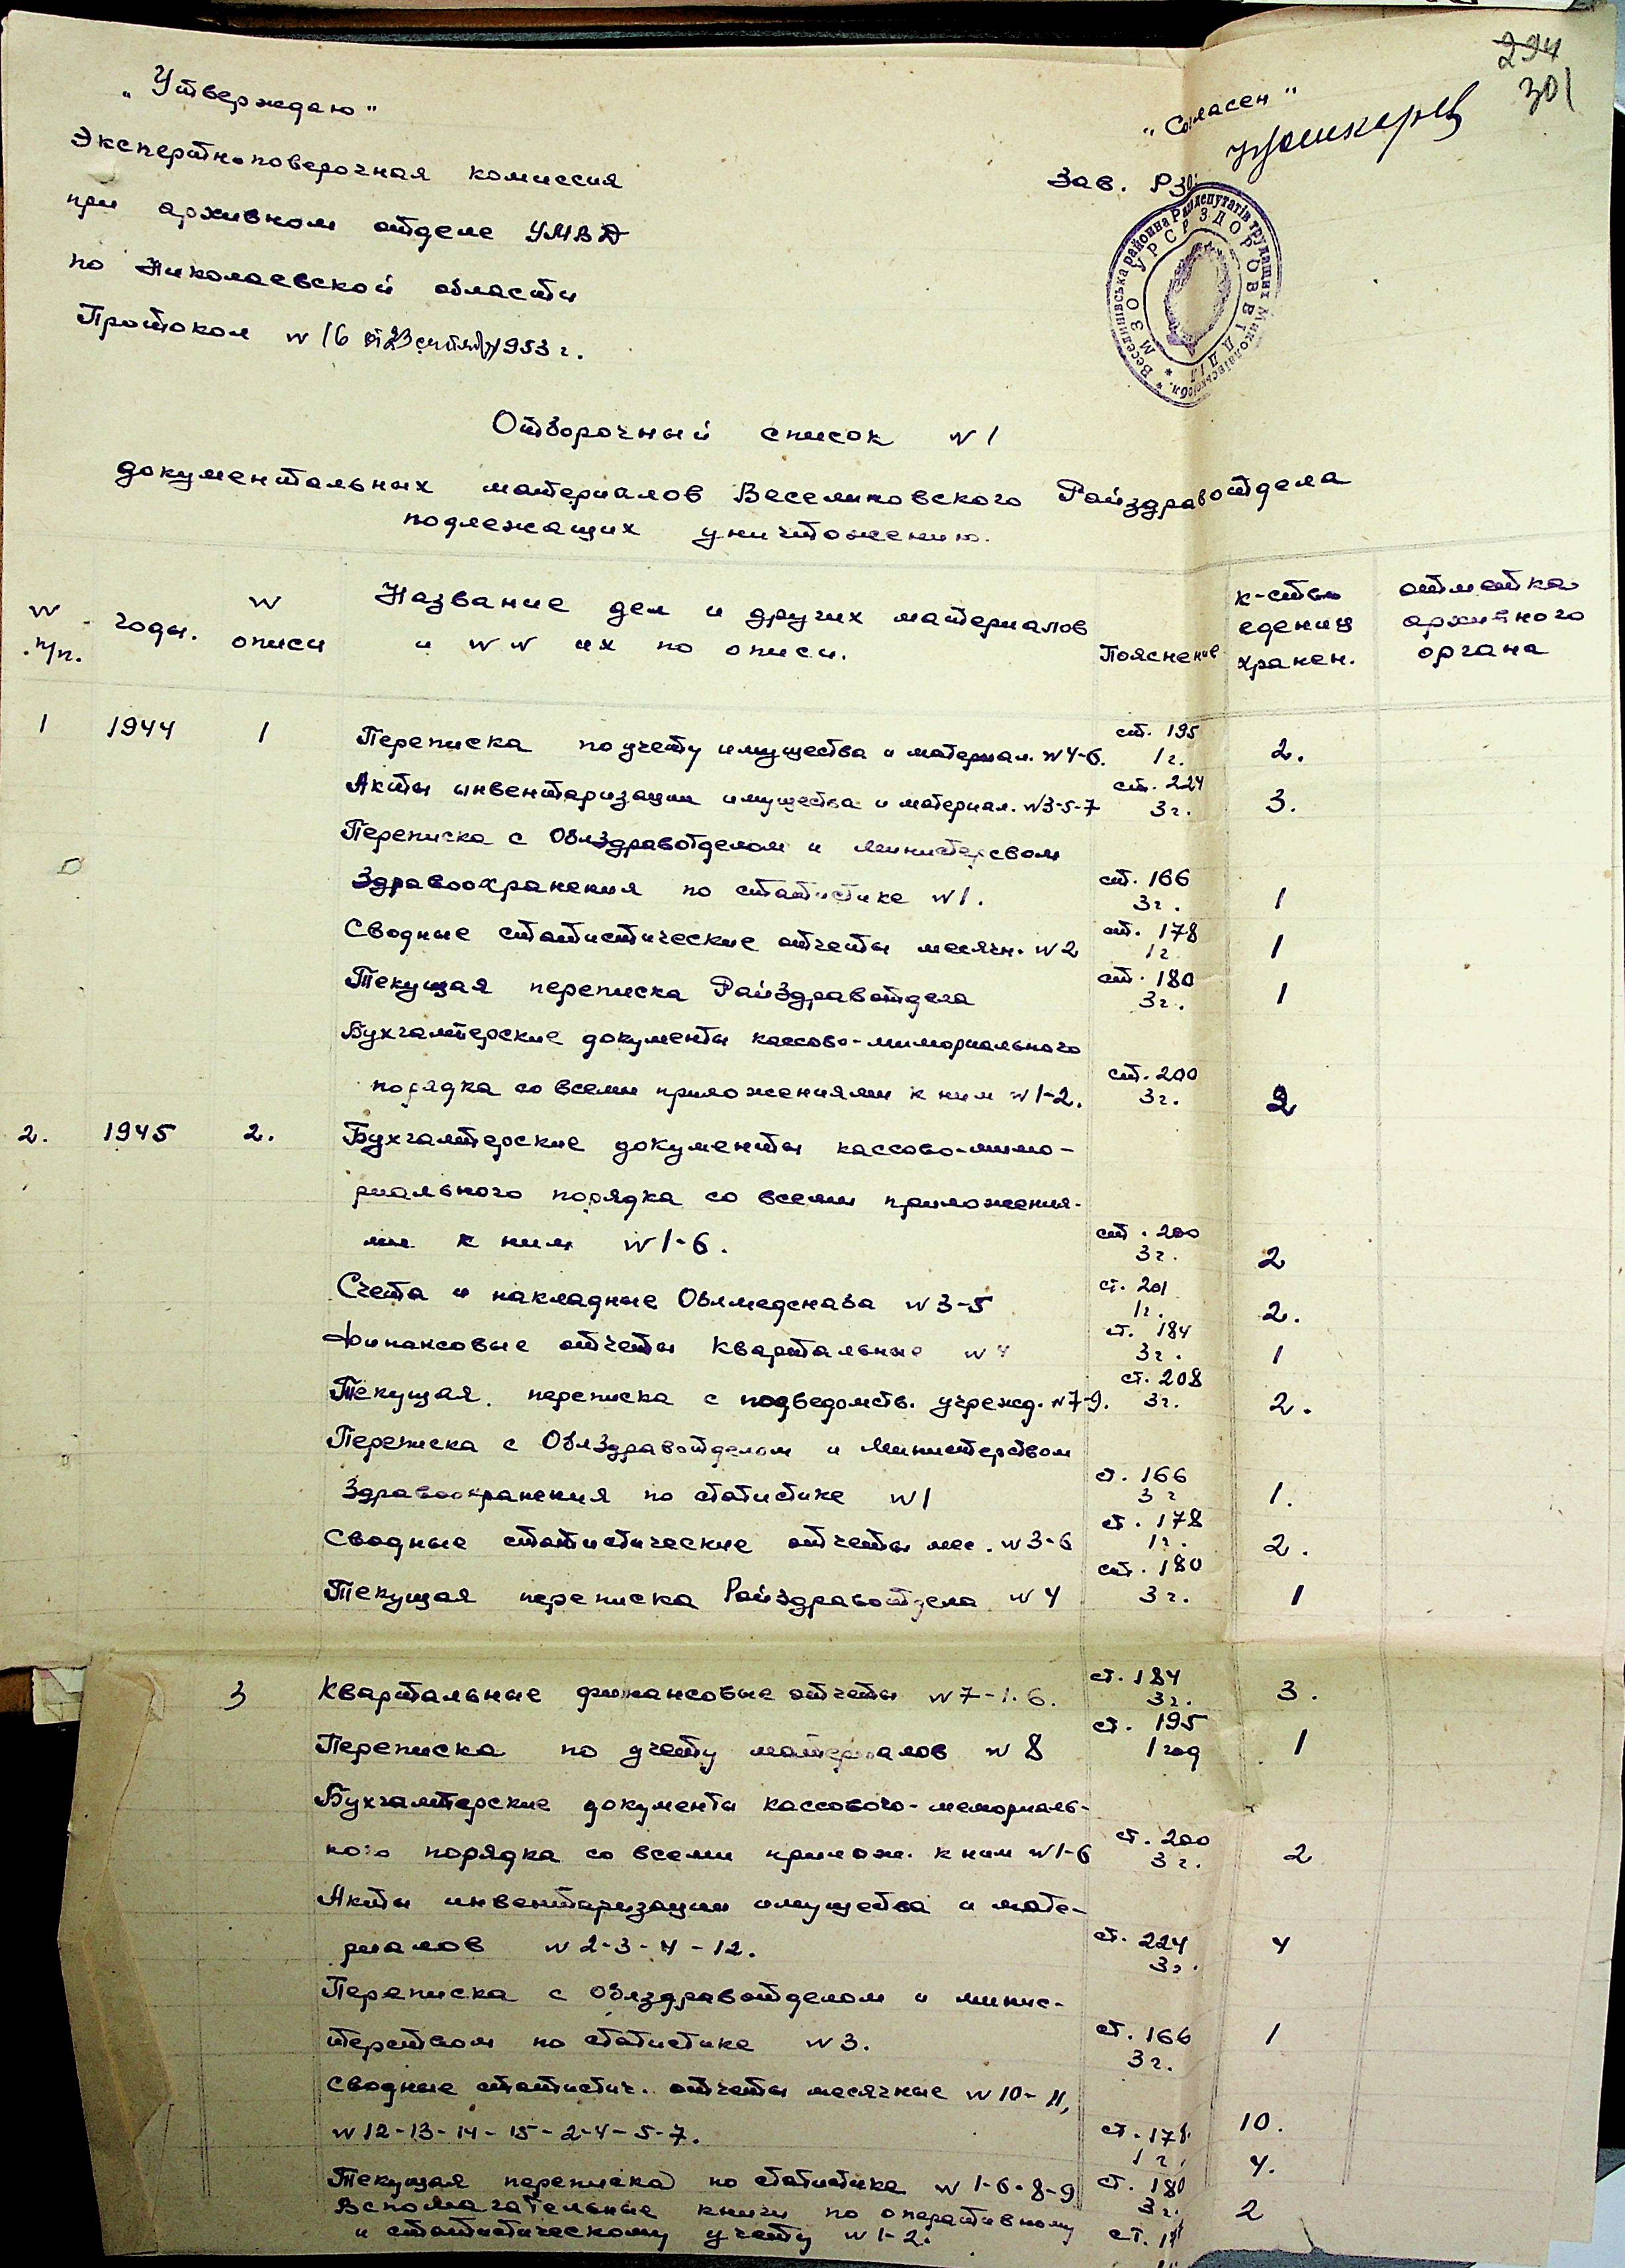 294
301
„Утверждаю"
Экспертно поверочная комиссия
при архивном отделе УМВД
по Николаевской области
Протокол N 16 от 23 сентября 1953 г.
„Согласен"
Зав. РЗО
* Веселинівська районна Рада депутатів трудящих Миколаївської обл. *
МЗО УРСР ЗДОРОВВІДДІЛ
Отборочный список N 1
документальных материалов Веселиновского Райздравотдела
подлежащих уничтожению.
N п/п. годы. N описи Название дел и других материалов и NN их по описи. Пояснение к-ство единиц хранен. отметка архивного органа
1 1944 1 Переписка по учету имущества и материал. N 4-6. ст. 195 1 г. 2.
Акты инвентаризации имущества и материал. N 3-5-7 ст. 224 3 г. 3.
Переписка с Облздравотделом и министерсвом
Здравоохранения по статистике N 1. ст. 166 3 г. 1
Сводные статистические отчеты месячн. N 2 ст. 178 1 г. 1
Текущая переписка Райздравотдела ст. 180 3 г. 1
Бухгалтерские документы кассово-мимориального
порядка со всеми приложениями к ним N 1-2. ст. 200 3 г. 2
2. 1945 2. Бухгалтерские документы кассово-мимо-
риального порядка со всеми приложения-
ми к ним N 1-6. ст. 200 3 г. 2
Счета и накладные Облмедснаба N 3-5 ст. 201 1 г. 2.
Финансовые отчеты квартальные N 4 ст. 184 3 г. 1
Текущая переписка с подведомств. учрежд. N 7-9. ст. 208 3 г. 2.
Переписка с Облздравотделом и Министерством
Здравоохранения по статистике N 1 ст. 166 3 г 1.
Сводные статистические отчеты мес. N 3-6 ст. 178 1 г. 2.
Текущая переписка Райздравотдела N 4 ст. 180 3 г. 1
3 Квартальные финансовые отчеты N 7-1.6. ст. 184 3 г. 3.
Переписка по учету материалов N 8 ст. 195 1 год 1
Бухгалтерские документы кассового-мемориаль-
ного порядка со всеми прилож. к ним N 1-6 ст. 200 3 г. 2
Акты инвентаризации имущества и мате-
риалов N 2-3-4-12. ст. 224 3 г. 4
Переписка с Облздравотделом и минис-
терством по статистике N 3. ст. 166 3 г. 1
Сводные статистич. отчеты месячные N 10-11,
N 12-13-14-15-2-4-5-7. ст. 178 1 г. 10.
Текущая переписка по статистике N 1-6-8-9 ст. 180 3 г. 4.
Вспомагательные книги по оперативному
и статистическому учету N 1-2. ст. 2